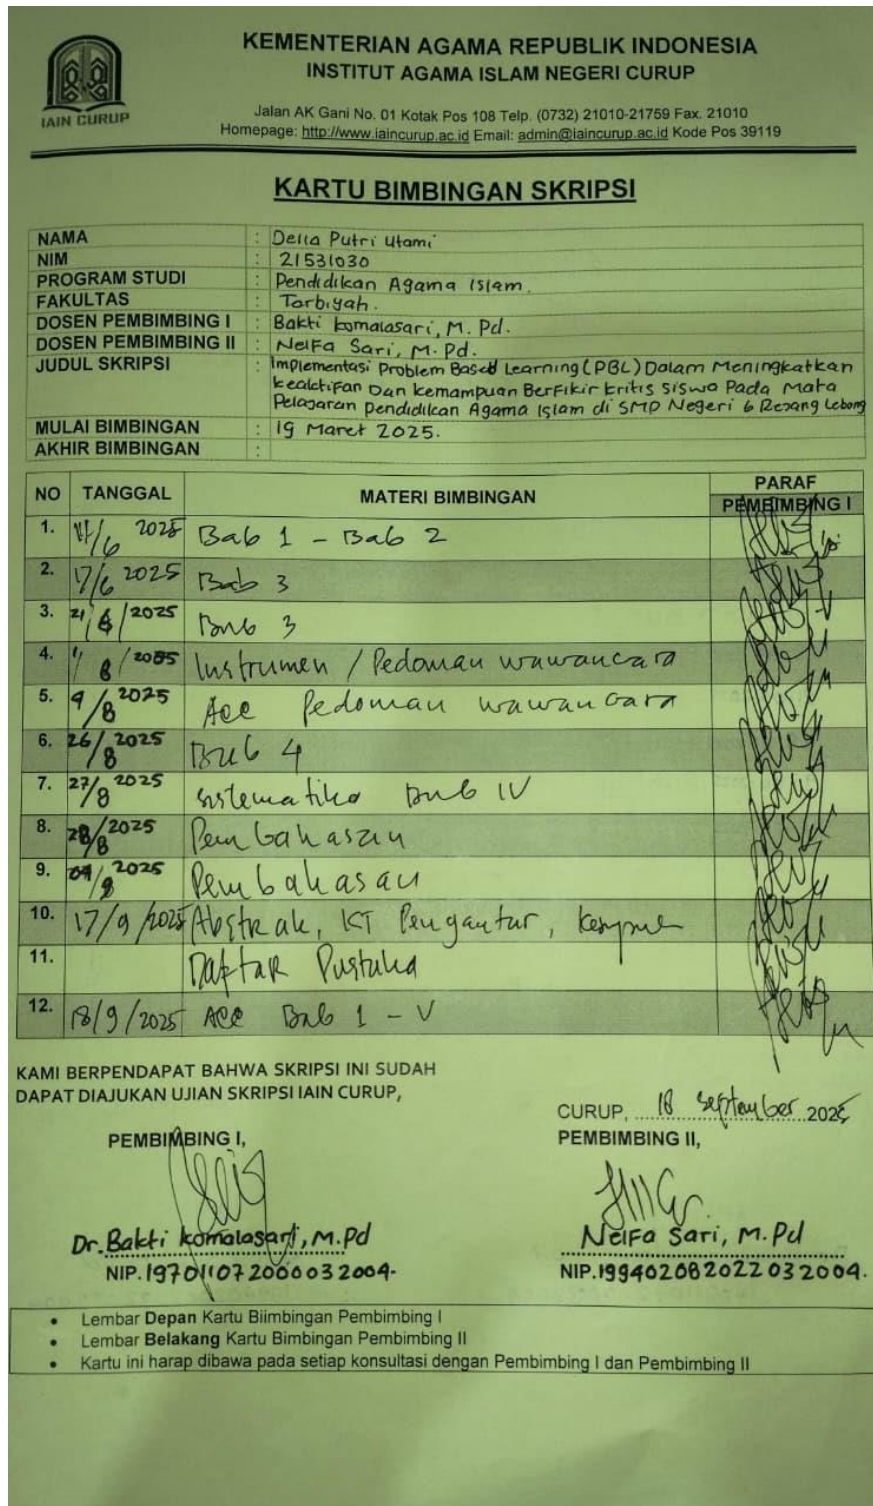 IAIN CURUP
KEMENTERIAN AGAMA REPUBLIK INDONESIA
INSTITUT AGAMA ISLAM NEGERI CURUP
Jalan AK Gani No. 01 Kotak Pos 108 Telp. (0732) 21010-21759 Fax. 21010
Homepage: http://www.iaincurup.ac.id Email: admin@iaincurup.ac.id Kode Pos 39119
KARTU BIMBINGAN SKRIPSI
NAMA : Della Putri Utami
NIM : 21531030
PROGRAM STUDI : Pendidikan Agama Islam.
FAKULTAS : Tarbiyah.
DOSEN PEMBIMBING I : Bakti komalasari, M. Pd.
DOSEN PEMBIMBING II : Nelfa Sari, M. Pd.
JUDUL SKRIPSI : Implementasi Problem Based Learning (PBL) Dalam Meningkatkan
keaktifan Dan kemampuan Berfikir kritis siswa Pada Mata
Pelajaran pendidikan Agama Islam di SMP Negeri 6 Rejang Lebong
MULAI BIMBINGAN : 19 Maret 2025.
AKHIR BIMBINGAN :
NO TANGGAL MATERI BIMBINGAN PARAF
PEMBIMBING I
1. /6 2025 Bab 1 - Bab 2
2. 17/6 2025 Bab 3
3. 21/6/2025 Bab 3
4. 1/8/2025 Instrumen / Pedoman wawancara
5. 9/8 2025 Acc Pedoman wawancara
6. 26/8 2025 Bab 4
7. 27/8 2025 Sistematika Bab IV
8. 28/8 2025 Pembahasan
9. 2025 Pembahasan
10. 17/9/2025 Abstrak, KT Pengantar,
11. Daftar Pustaka
12. 18/9/2025 ACC Bab 1 - V
KAMI BERPENDAPAT BAHWA SKRIPSI INI SUDAH
DAPAT DIAJUKAN UJIAN SKRIPSI IAIN CURUP,
CURUP, 18 September 2025
PEMBIMBING I,
PEMBIMBING II,
Dr. Bakti komalasari, M.Pd
NIP. 197011072000032004.
Nelfa Sari, M.Pd
NIP. 199402082022032004.
• Lembar Depan Kartu Biimbingan Pembimbing I
• Lembar Belakang Kartu Bimbingan Pembimbing II
• Kartu ini harap dibawa pada setiap konsultasi dengan Pembimbing I dan Pembimbing II